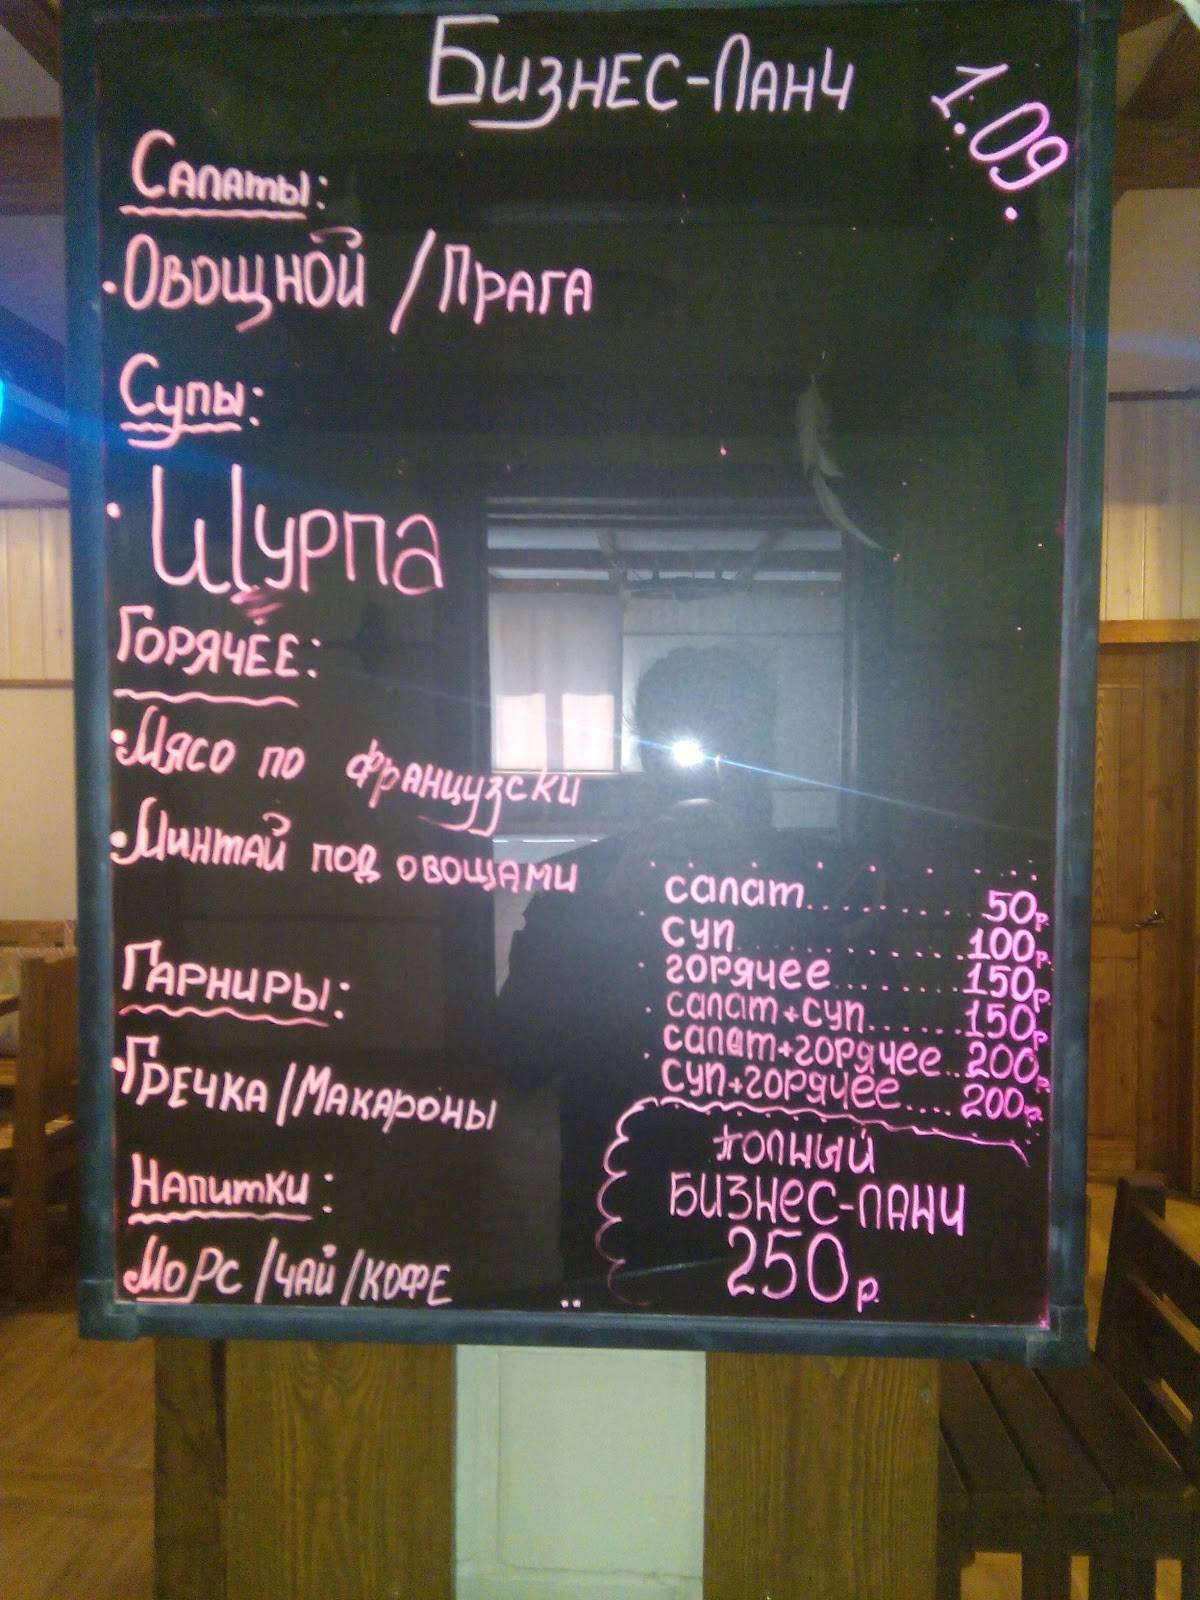 Бизнес-Ланч
1.09.
Салаты:
·Овощной / Прага
Супы:
· Шурпа
Горячее:
·Мясо по французски
·Минтай под овощами
Гарниры:
·Гречка/Макароны
Напитки:
Морс/чай/кофе
салат.......... 50р.
суп.......... 100р.
горячее........ 150р.
салат+суп...... 150р
салат+горячее.. 200р.
суп+горячее.... 200р.
полный
Бизнес-ланч
250р.